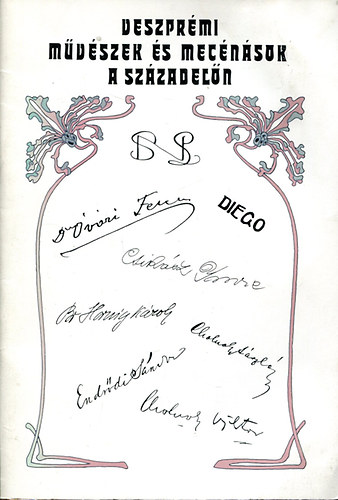 VESZPRÉMI
MŰVÉSZEK ÉS MECÉNÁSOK
A SZÁZADELŐN
Dr Óvári Ferenc
DIEGO
Csikász Imre
Br Hornig Károly
Cholnoky László
Endrődi Sándor
Cholnoky Viktor